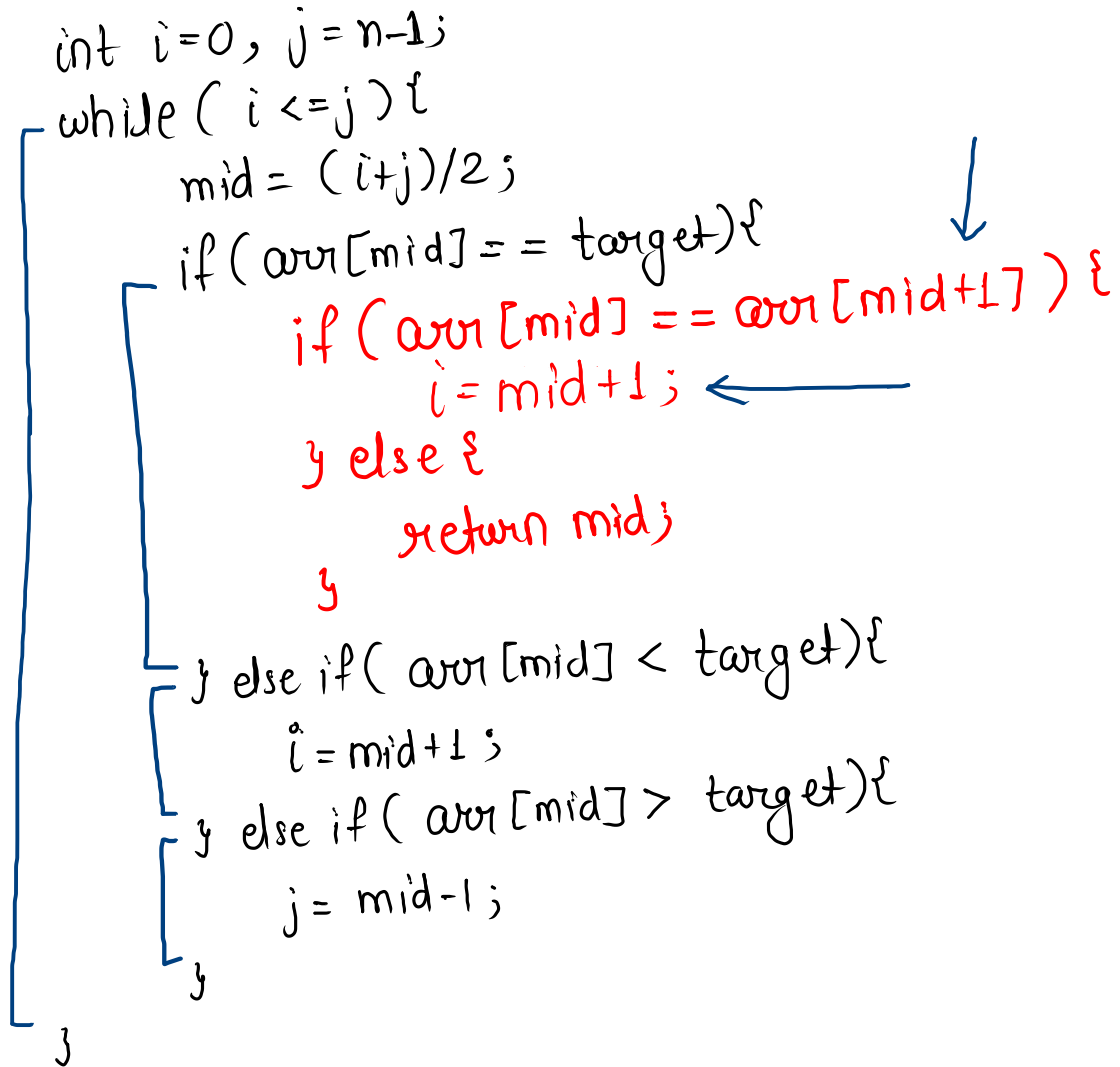 int i=0, j=n-1;
while( i<=j){
mid = (i+j)/2;
if(arr[mid]== target){
if(arr[mid] == arr[mid+1]){
i=mid+1;
} else {
return mid;
}
} else if( arr[mid] < target){
i=mid+1;
} else if( arr[mid] > target){
j= mid-1;
}
}